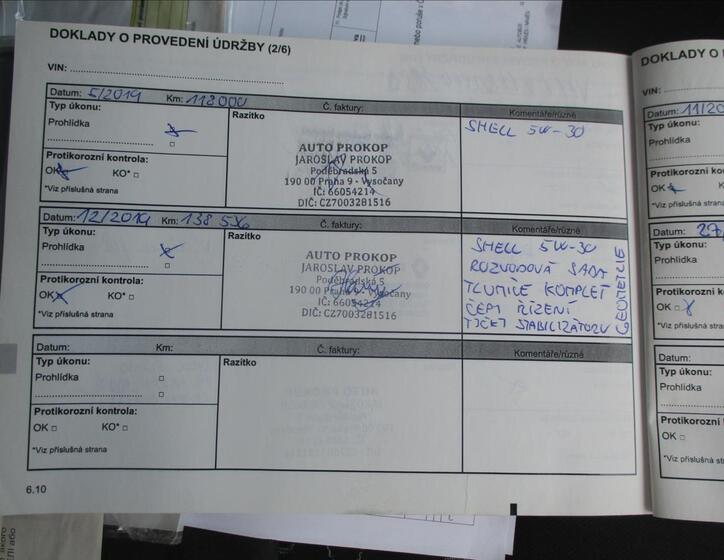 DOKLADY O PROVEDENÍ ÚDRŽBY (2/6)
VIN:
Datum: 5/2019 Km: 118000 Č. faktury: Komentáře/různé
Typ úkonu: Razítko
Prohlídka
SHELL 5W-30
AUTO PROKOP
JAROSLAV PROKOP
Poděbradská 5
190 00 Praha 9 - Vysočany
IČ: 66054214
DIČ: CZ7003281516
Protikorozní kontrola:
OK KO*
*Viz příslušná strana
Datum: 12/2019 Km: 138 Č. faktury: Komentáře/různé
Typ úkonu: Razítko
Prohlídka
AUTO PROKOP
JAROSLAV PROKOP
Poděbradská 5
190 00 Praha 9 - Vysočany
IČ: 66054214
DIČ: CZ7003281516
SHELL 5W-30
ROZVODOVÁ SADA
TLUMIČE KOMPLET
ČEPY ŘÍZENÍ
TYČKY STABILIZÁTORU
GEOMETRIE
Protikorozní kontrola:
OK KO*
*Viz příslušná strana
Datum: Km: Č. faktury: Komentáře/různé
Typ úkonu: Razítko
Prohlídka
Protikorozní kontrola:
OK KO*
*Viz příslušná strana
6.10
DOKLADY O
VIN:
Datum: 11/20
Typ úkonu:
Prohlídka
Protikorozní
OK
*Viz příslušná
Datum: 27
Typ úkonu:
Prohlídka
Protikorozní
OK
*Viz příslušná
Datum:
Typ úkonu:
Prohlídka
Protikorozní
OK
*Viz příslušná